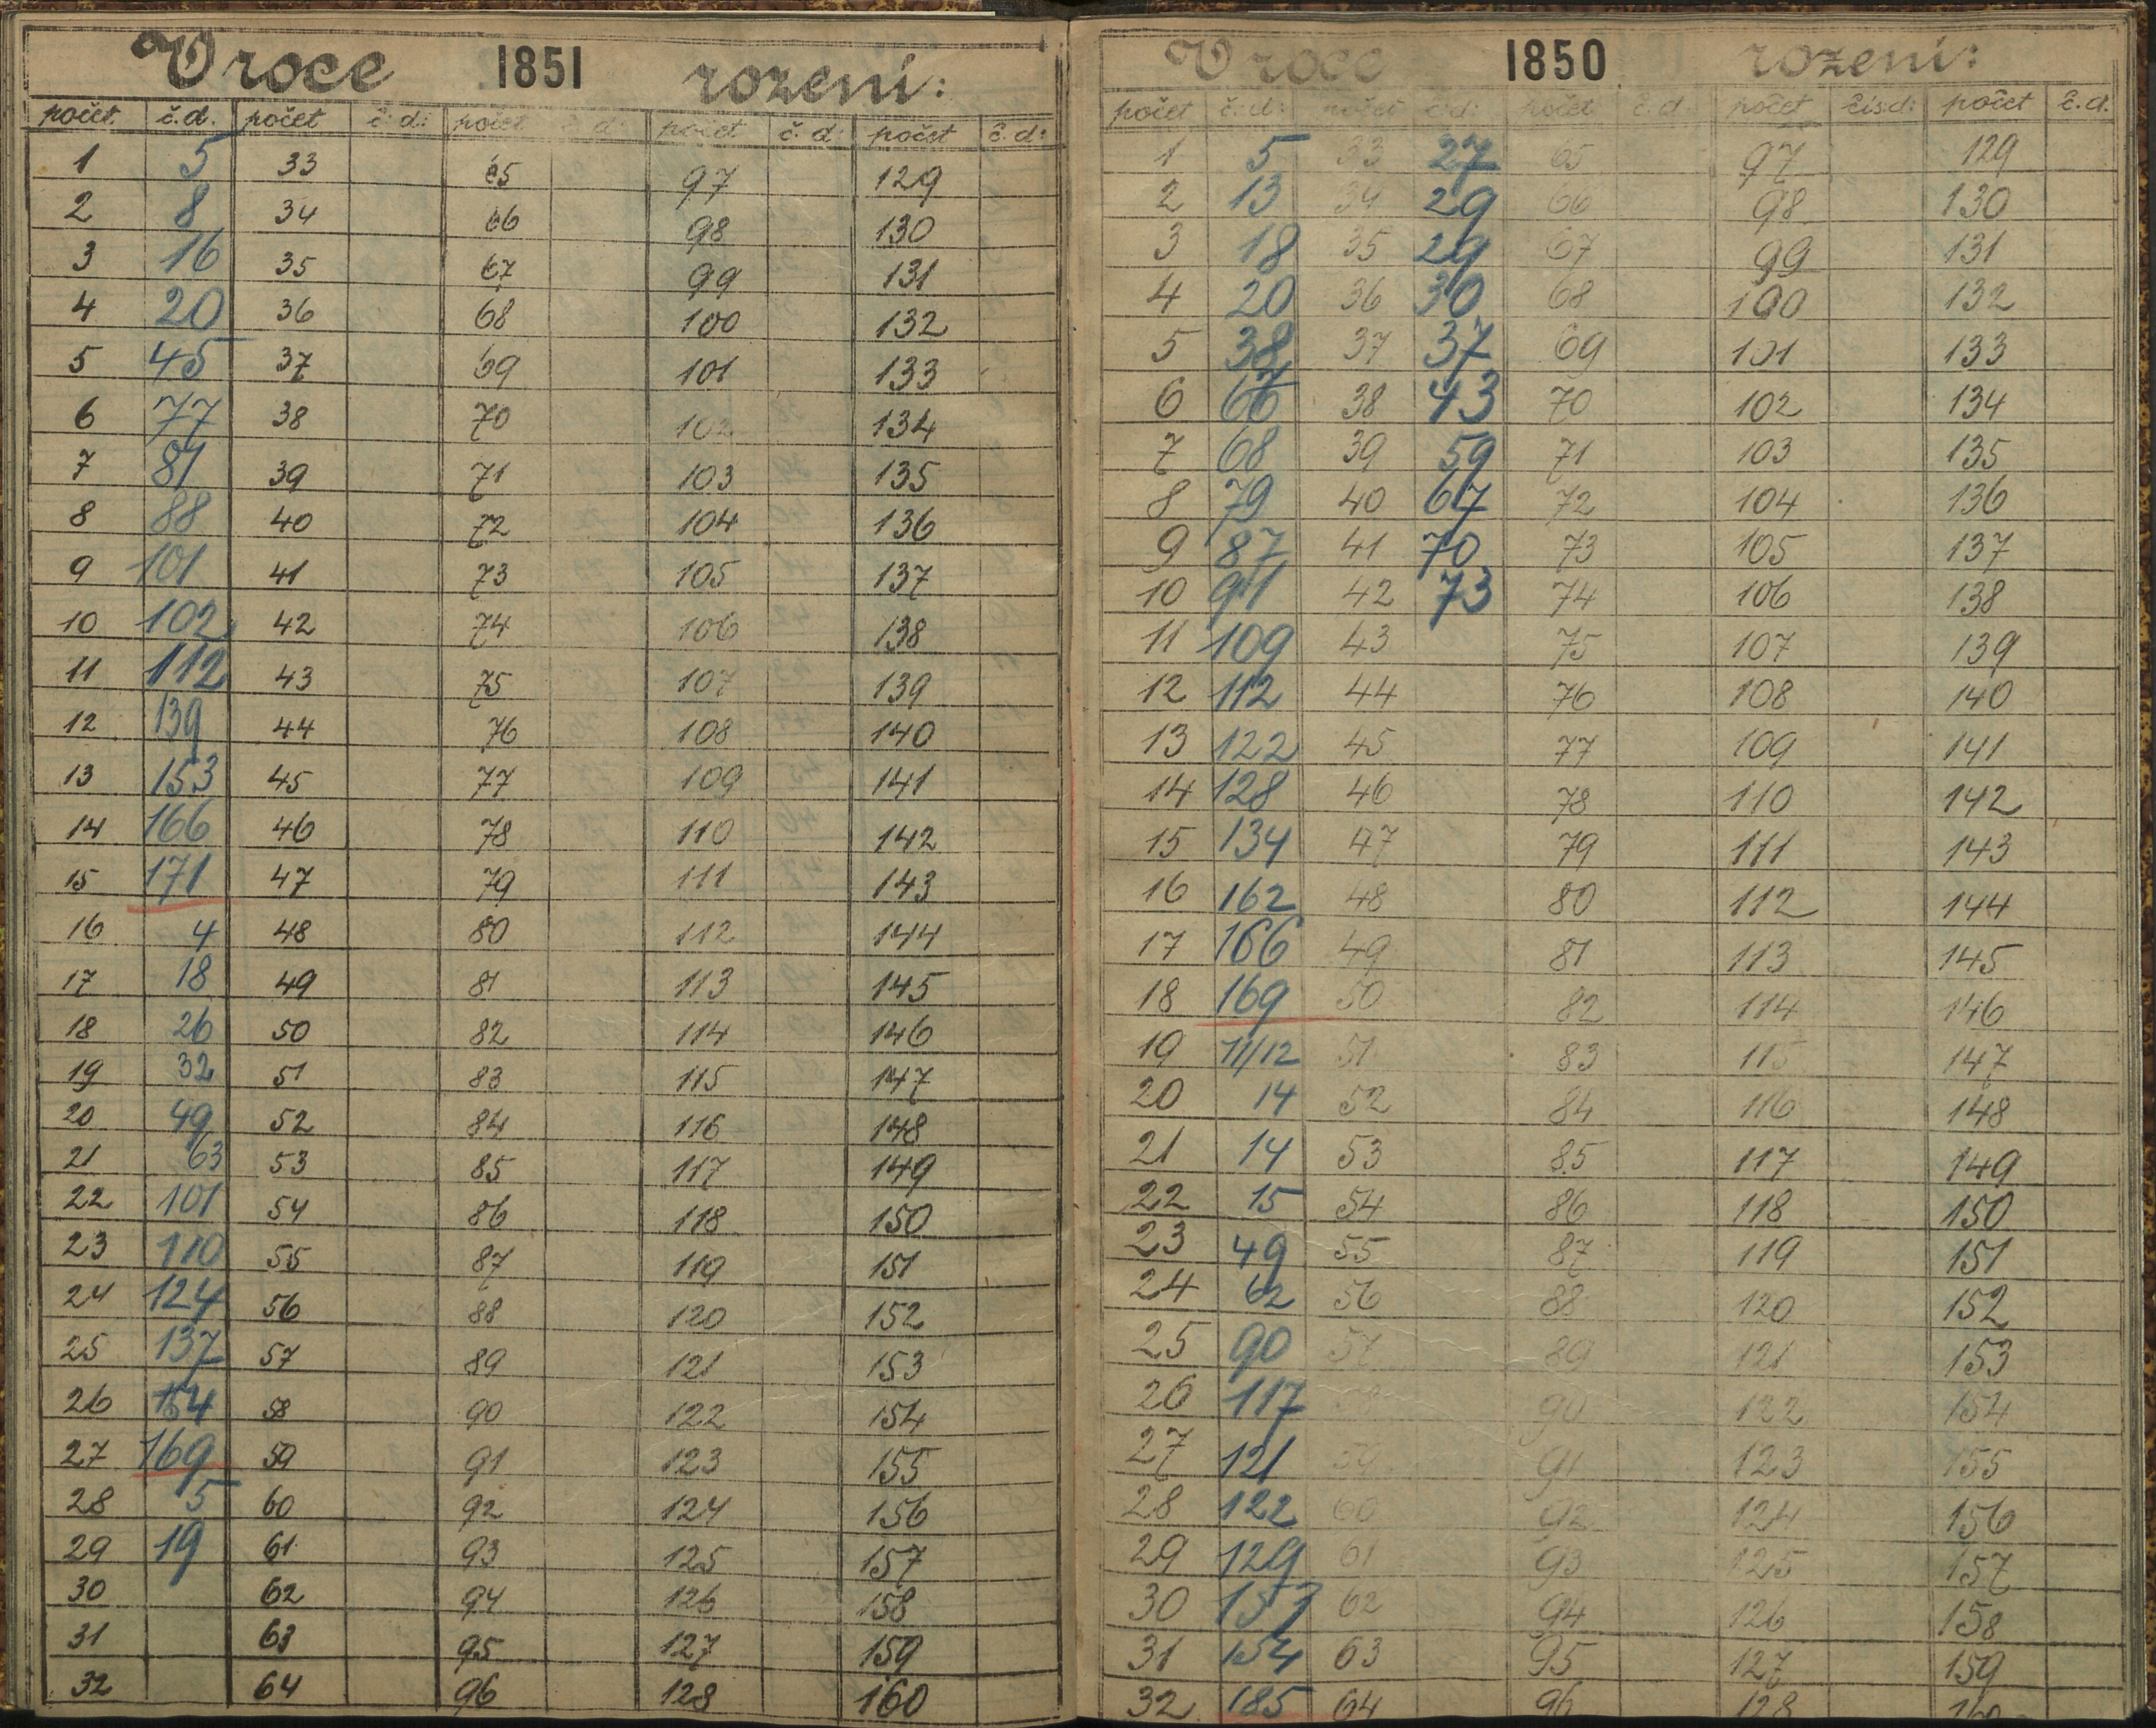 V roce 1851 rozeni:
počet č.d. počet č.d: počet č.d: počet č.d: počet č.d:
1 5 33 65 97 129
2 8 34 66 98 130
3 16 35 67 99 131
4 20 36 68 100 132
5 45 37 69 101 133
6 77 38 70 102 134
7 81 39 71 103 135
8 88 40 72 104 136
9 101 41 73 105 137
10 102 42 74 106 138
11 112 43 75 107 139
12 139 44 76 108 140
13 153 45 77 109 141
14 166 46 78 110 142
15 171 47 79 111 143
16 4 48 80 112 144
17 18 49 81 113 145
18 26 50 82 114 146
19 32 51 83 115 147
20 49 52 84 116 148
21 63 53 85 117 149
22 101 54 86 118 150
23 110 55 87 119 151
24 124 56 88 120 152
25 137 57 89 121 153
26 154 58 90 122 154
27 169 59 91 123 155
28 5 60 92 124 156
29 19 61 93 125 157
30 62 94 126 158
31 63 95 127 159
32 64 96 128 160
V roce 1850 rozeni:
počet č.d: počet č.d: počet č.d. počet čís.d: počet č.d.
1 5 33 27 65 97 129
2 13 34 29 66 98 130
3 18 35 29 67 99 131
4 20 36 30 68 100 132
5 38 37 37 69 101 133
6 66 38 43 70 102 134
7 68 39 59 71 103 135
8 79 40 67 72 104 136
9 87 41 70 73 105 137
10 91 42 73 74 106 138
11 109 43 75 107 139
12 112 44 76 108 140
13 122 45 77 109 141
14 128 46 78 110 142
15 134 47 79 111 143
16 162 48 80 112 144
17 166 49 81 113 145
18 169 50 82 114 146
19 11/12 51 83 115 147
20 14 52 84 116 148
21 14 53 85 117 149
22 15 54 86 118 150
23 49 55 87 119 151
24 62 56 88 120 152
25 90 57 89 121 153
26 117 58 90 122 154
27 121 59 91 123 155
28 122 60 92 124 156
29 129 61 93 125 157
30 62 94 126 158
31 154 63 95 127 159
32 185 64 96 128 160